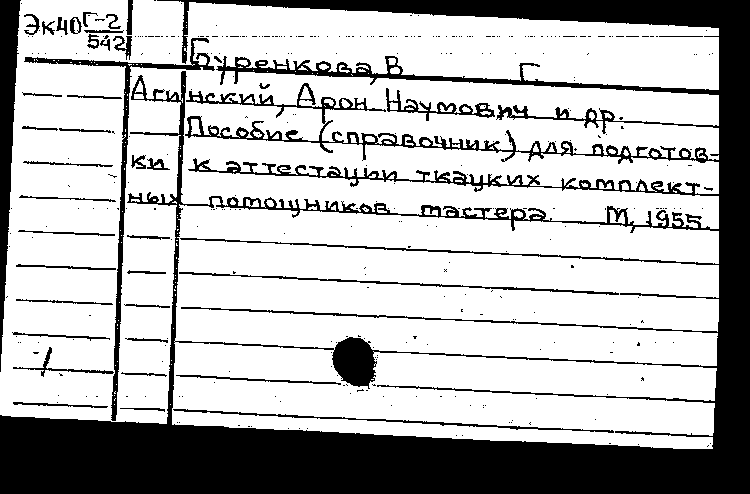 Эк40 Г-2/542
Буренкова, В Г.
Агинский, Арон Наумович и др.
Пособие (справочник) для подготов-
ки к аттестации ткацких комплект-
ных помощников мастера. М, 1955.